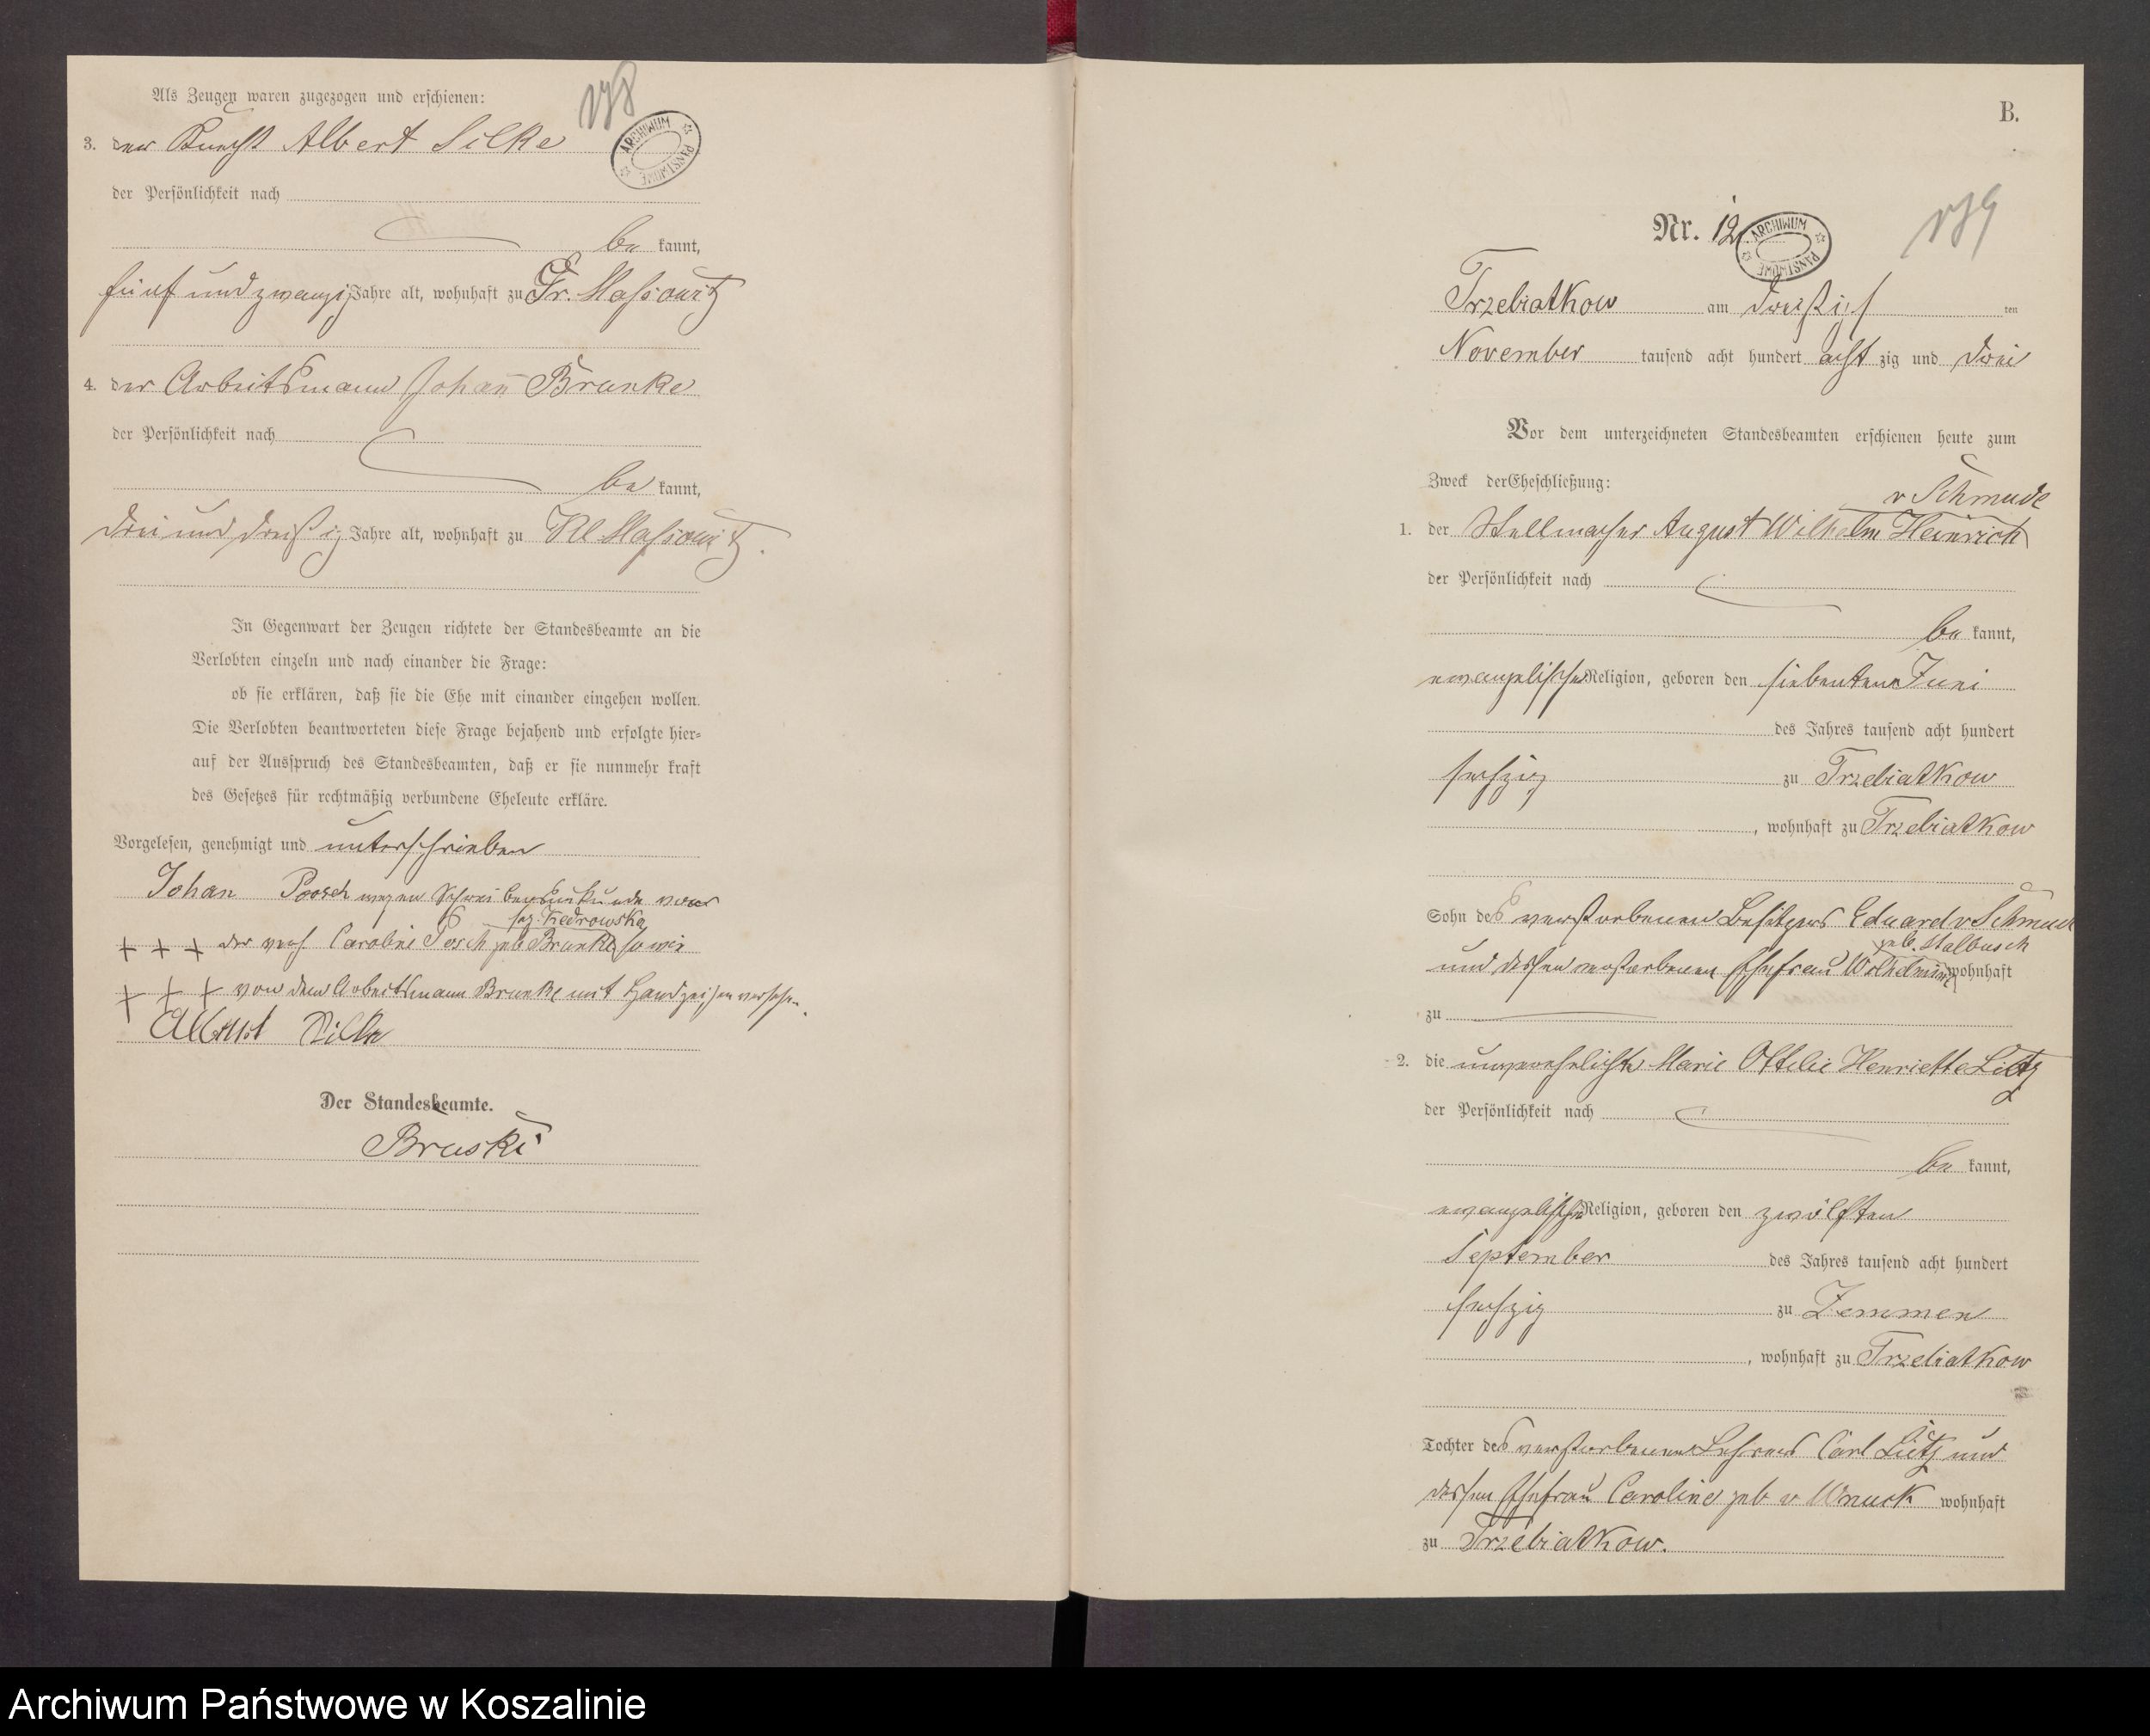 Als Zeugen waren zugezogen und erschienen:
178
ARCHIWUM PAŃSTWOWE
3. der Knecht Albert Silke
der Persönlichkeit nach
be kannt,
fünf und zwanzig Jahre alt, wohnhaft zu Gr. Massowitz
4. der Arbeitsmann Johann Brunke
der Persönlichkeit nach
be kannt,
drei und dreißig Jahre alt, wohnhaft zu Kl Massowitz.
In Gegenwart der Zeugen richtete der Standesbeamte an die
Verlobten einzeln und nach einander die Frage:
ob sie erklären, daß sie die Ehe mit einander eingehen wollen.
Die Verlobten beantworteten diese Frage bejahend und erfolgte hier-
auf der Ausspruch des Standesbeamten, daß er sie nunmehr kraft
des Gesetzes für rechtmäßig verbundene Eheleute erkläre.
Vorgelesen, genehmigt und unterschrieben
Johan Poosch wegen Schreibensunkunde von
Kedrowska
+ + + der Caroline Posch geb Brunke sowie
+ + + von dem Arbeitsmann Brunke mit Handzeichen versehen.
Albert Silke
Der Standesbeamte.
Bruski
B.
179
Nr. 12
ARCHIWUM PAŃSTWOWE
Trzebiatkow am dreißigs ten
November tausend acht hundert acht zig und drei
Vor dem unterzeichneten Standesbeamten erschienen heute zum
Zweck der Eheschließung:
v Schmude
1. der Stellmacher August Wilhelm Heinrich
der Persönlichkeit nach
be kannt,
evangelischer Religion, geboren den siebenten Juni
des Jahres tausend acht hundert
sechzig zu Trzebiatkow
, wohnhaft zu Trzebiatkow
Sohn des verstorbenen Besitzers Eduard v Schmude
geb. Malbusch
und dessen verstorbenen Ehefrau Wilhelmine wohnhaft
zu
2. die unverehelichte Marie Ottilie Henriette Lietz
der Persönlichkeit nach
be kannt,
evangelischer Religion, geboren den zwölften
September des Jahres tausend acht hundert
sechzig zu Zemmen
, wohnhaft zu Trzebiatkow
Tochter des verstorbenen Lehrers Carl Lietz und
dessen Ehefrau Caroline geb v Wnuck wohnhaft
zu Trzebiatkow.
Archiwum Państwowe w Koszalinie